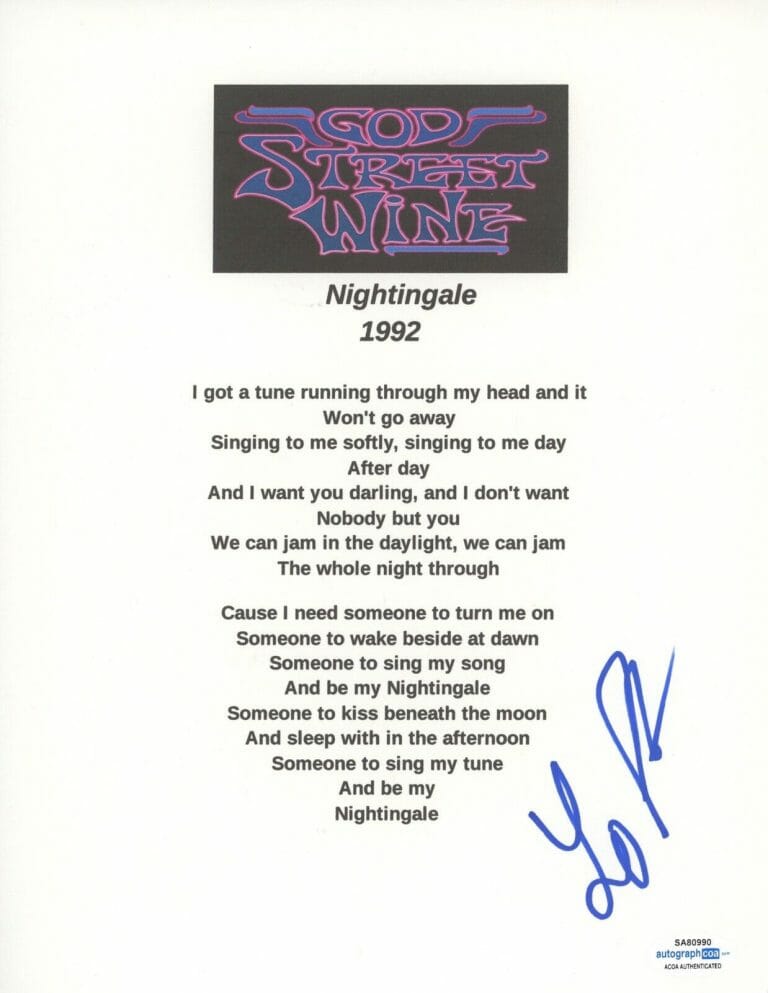 GOD
STREET
WINE
Nightingale
1992
I got a tune running through my head and it
Won't go away
Singing to me softly, singing to me day
After day
And I want you darling, and I don't want
Nobody but you
We can jam in the daylight, we can jam
The whole night through
Cause I need someone to turn me on
Someone to wake beside at dawn
Someone to sing my song
And be my Nightingale
Someone to kiss beneath the moon
And sleep with in the afternoon
Someone to sing my tune
And be my
Nightingale
SA80990
autographcoa
ACOA AUTHENTICATED